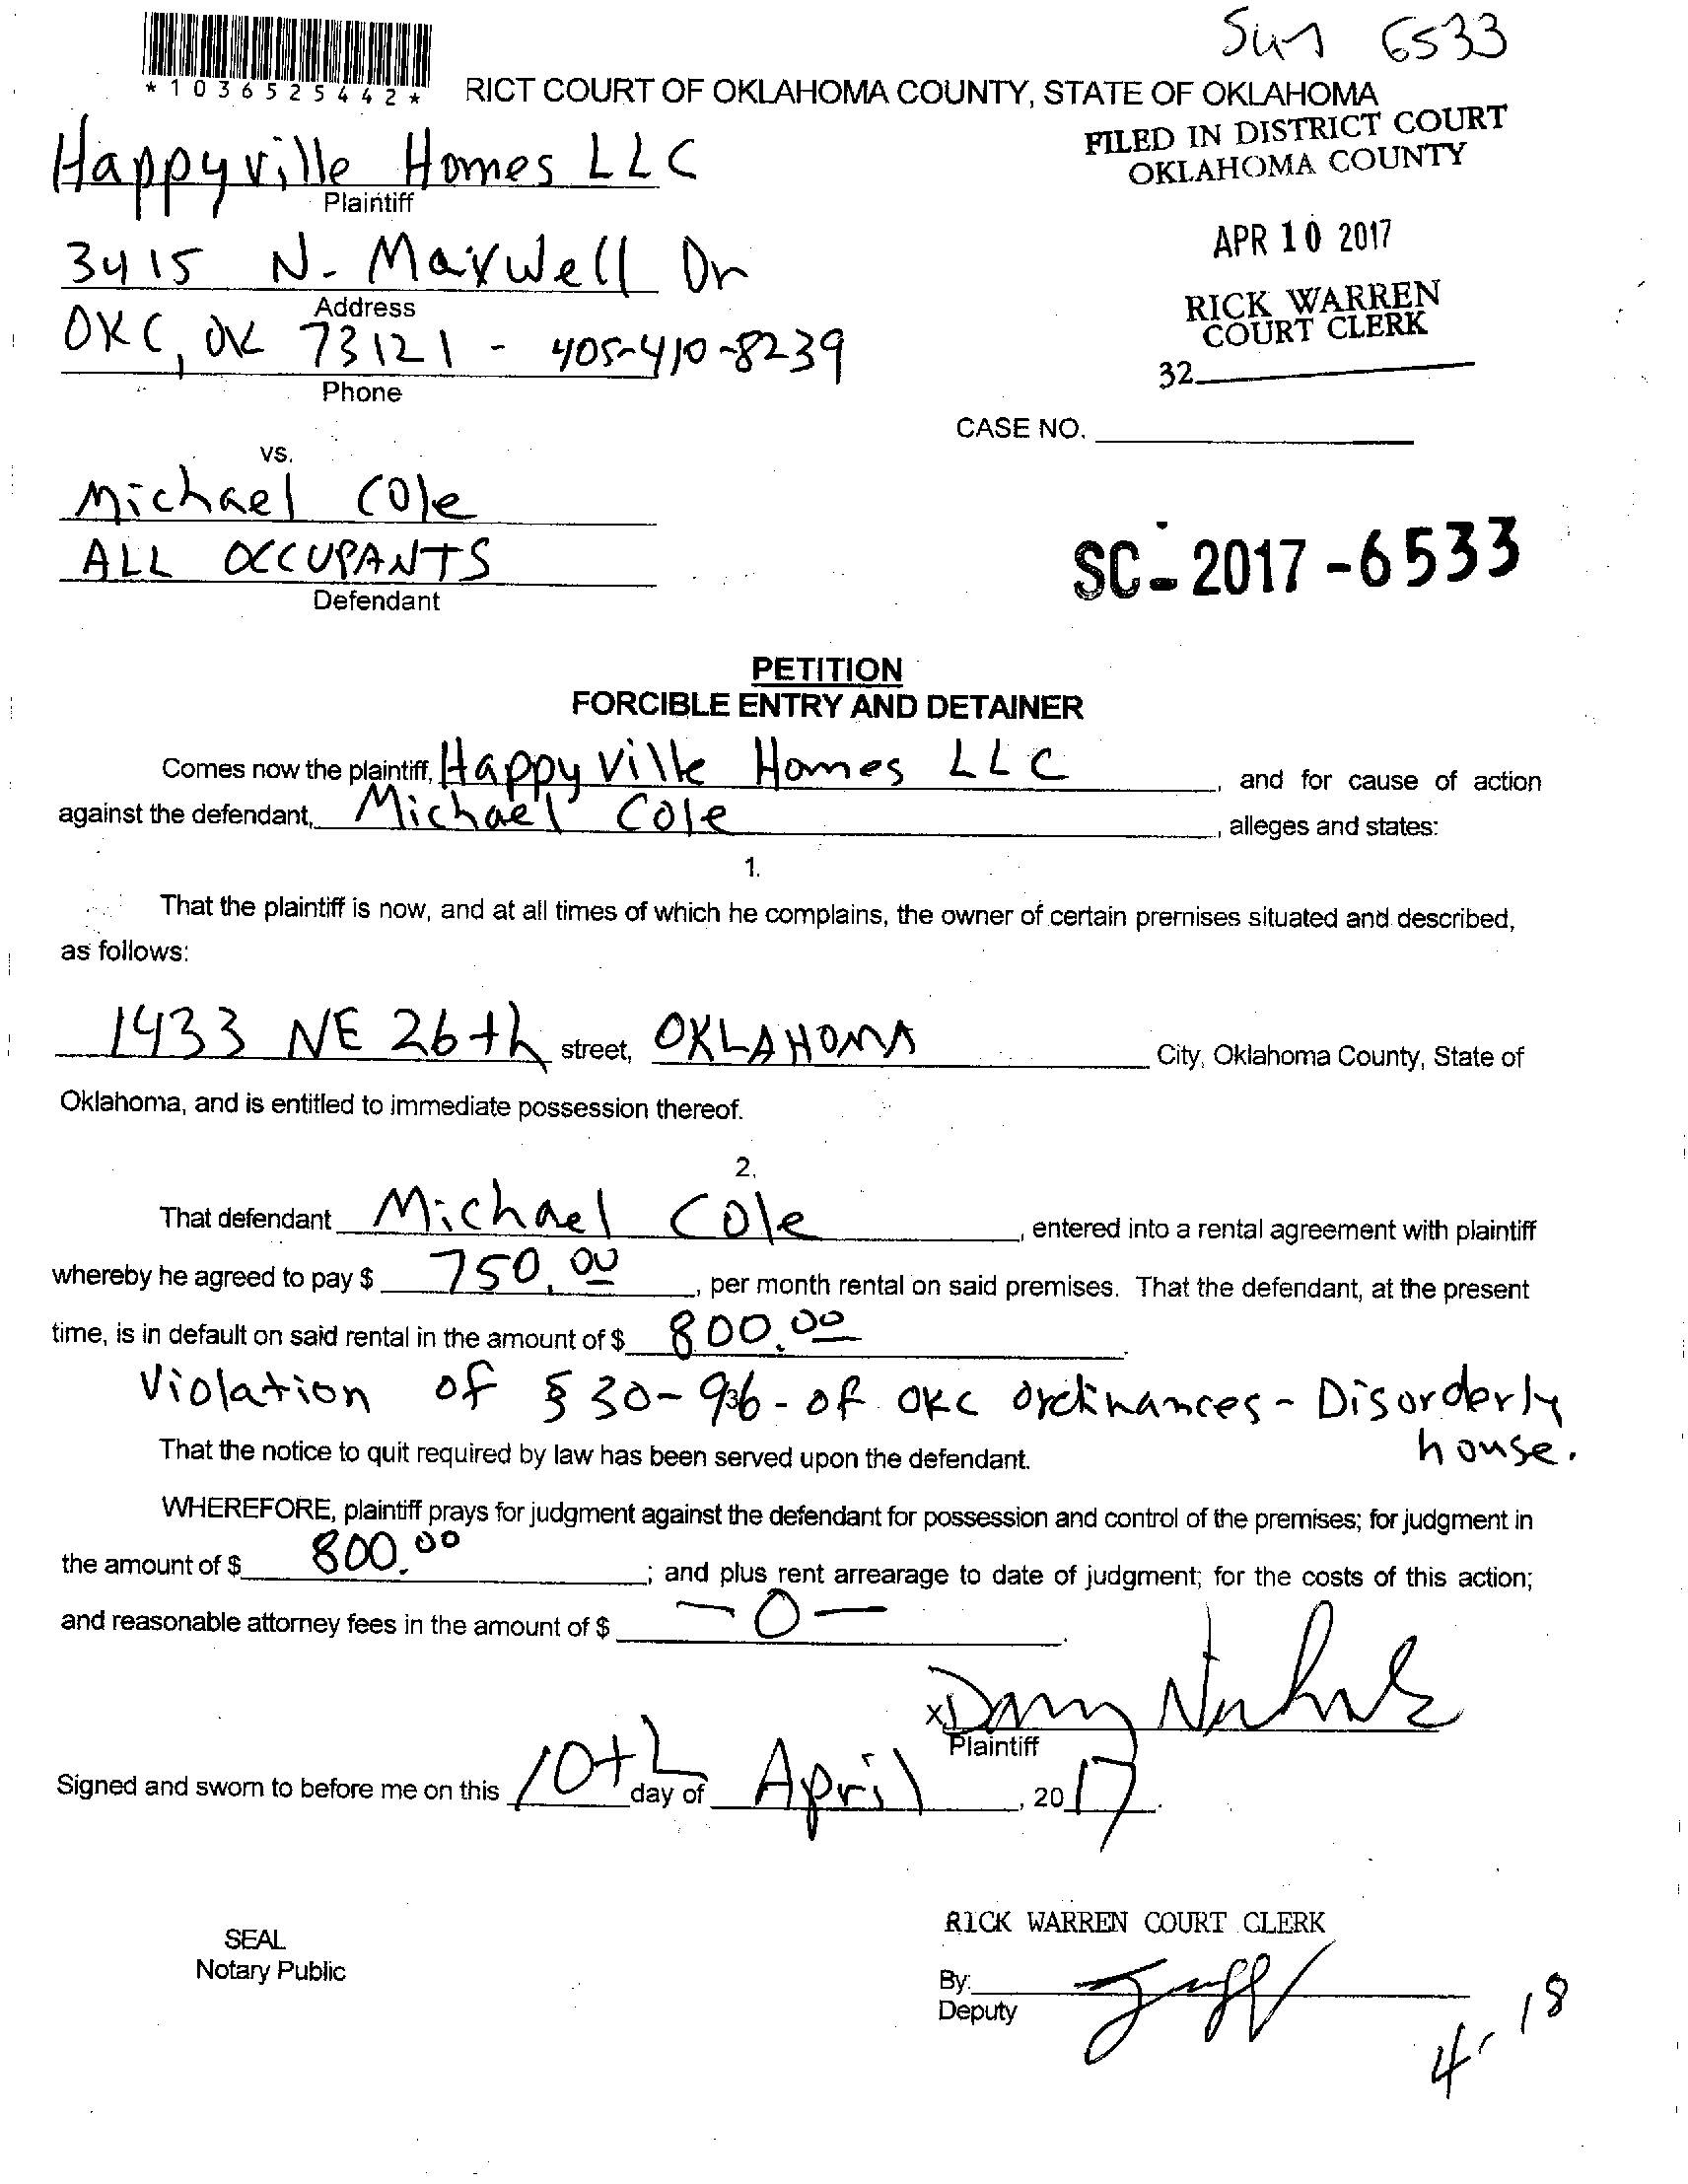 6533
*1036525442*
RICT COURT OF OKLAHOMA COUNTY, STATE OF OKLAHOMA
FILED IN DISTRICT COURT
OKLAHOMA COUNTY
Happyville Homes LLC
Plaintiff
APR 10 2017
3415 N. Maxwell Dr
Address
RICK WARREN
COURT CLERK
OKC, OK 73121 - 405-410-8239
Phone
32
CASE NO.
vs.
Michael Cole
ALL OCCUPANTS
Defendant
SC-2017-6533
PETITION
FORCIBLE ENTRY AND DETAINER
Comes now the plaintiff, Happyville Homes LLC, and for cause of action
against the defendant, Michael Cole, alleges and states:
1.
That the plaintiff is now, and at all times of which he complains, the owner of certain premises situated and described,
as follows:
1433 NE 26th street, OKLAHOMA City, Oklahoma County, State of
Oklahoma, and is entitled to immediate possession thereof.
2.
That defendant Michael Cole, entered into a rental agreement with plaintiff
whereby he agreed to pay $ 750.00, per month rental on said premises. That the defendant, at the present
time, is in default on said rental in the amount of $ 800.00.
Violation of § 30- of OKC ordinances - Disorderly
house.
That the notice to quit required by law has been served upon the defendant.
WHEREFORE, plaintiff prays for judgment against the defendant for possession and control of the premises; for judgment in
the amount of $ 800.00; and plus rent arrearage to date of judgment; for the costs of this action;
and reasonable attorney fees in the amount of $ -0-.
X
Plaintiff
Signed and sworn to before me on this 10th day of April, 2017.
RICK WARREN COURT CLERK
SEAL
Notary Public
By:
Deputy
4-18